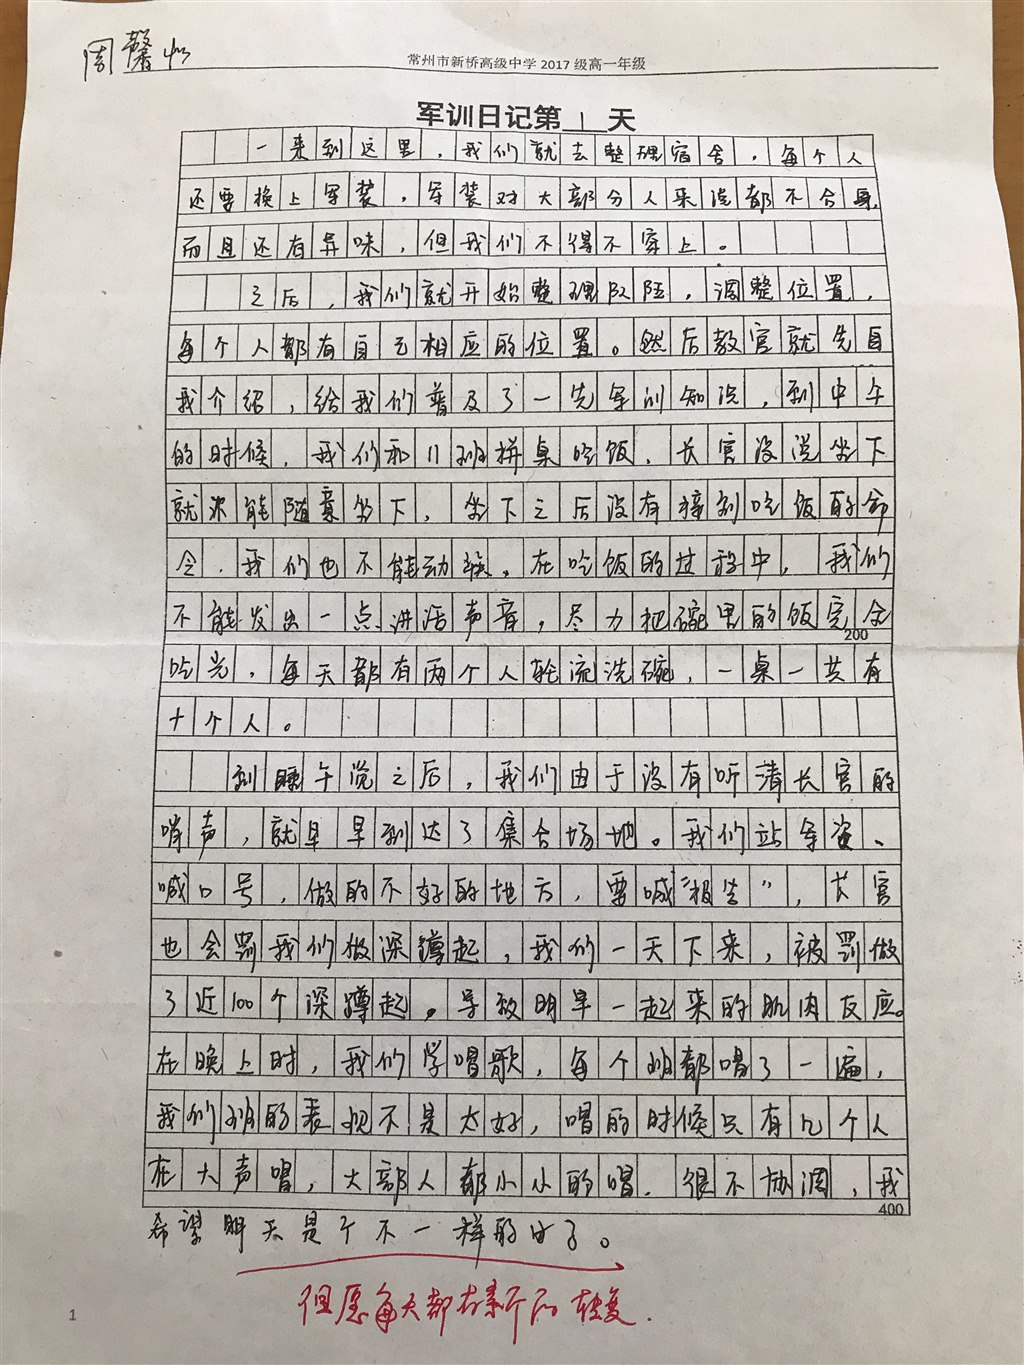 周馨怡
常州市新桥高级中学 2017 级高一年级
军训日记第 1 天
一来到这里，我们就去整理宿舍，每个人
还要换上军装，军装对大部分人来说都不合身，
而且还有异味，但我们不得不穿上。
之后，我们就开始整理队伍，调整位置，
每个人都有自己相应的位置。然后教官就先自
我介绍，给我们普及了一先军训知识，到中午
的时候，我们和11班拼桌吃饭，长官没说坐下
就不能随意坐下，坐下之后没有接到吃饭的命
令，我们也不能动筷，在吃饭的过程中，我们
不能发出一点讲话声音，尽力把碗里的饭完全
200
吃光，每天都有两个人轮流洗碗，一桌一共有
十个人。
到睡午觉之后，我们由于没有听清长官的
哨声，就早早到达了集合场地。我们站军姿、
喊口号，做的不好的地方，要喊“报告”，长官
也会罚我们做深蹲起，我们一天下来，被罚做
了近100个深蹲起。导致明早一起来的肌肉反应。
在晚上时，我们学唱歌，每个班都唱了一遍，
我们班的表现不是太好，唱的时候只有几个人
在大声唱，大部人都小小的唱，很不协调，我
400
希望明天是个不一样的日子。
但愿每天都有新的
1